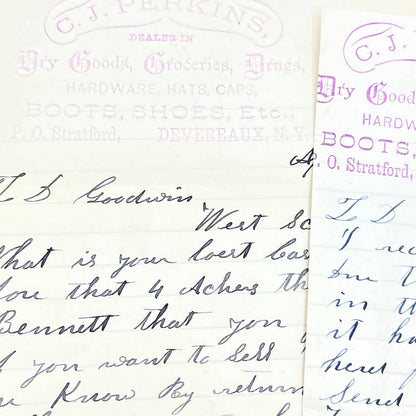 C. J. PERKINS,
DEALER IN
Dry Goods, Groceries, Drugs,
HARDWARE, HATS, CAPS,
BOOTS, SHOES, Etc.,
P. O. Stratford, DEVEREAUX, N. Y.
Ap
I D Goodwin
West Sc
What is your loest Cas
for that 4 Achers th
Bennett that you
if you want to Sell
me Know By return
C. J.
Dry Good
HARDW
BOOTS,
P. O. Stratford,
I D
I rec
in th
it ha
here
Send